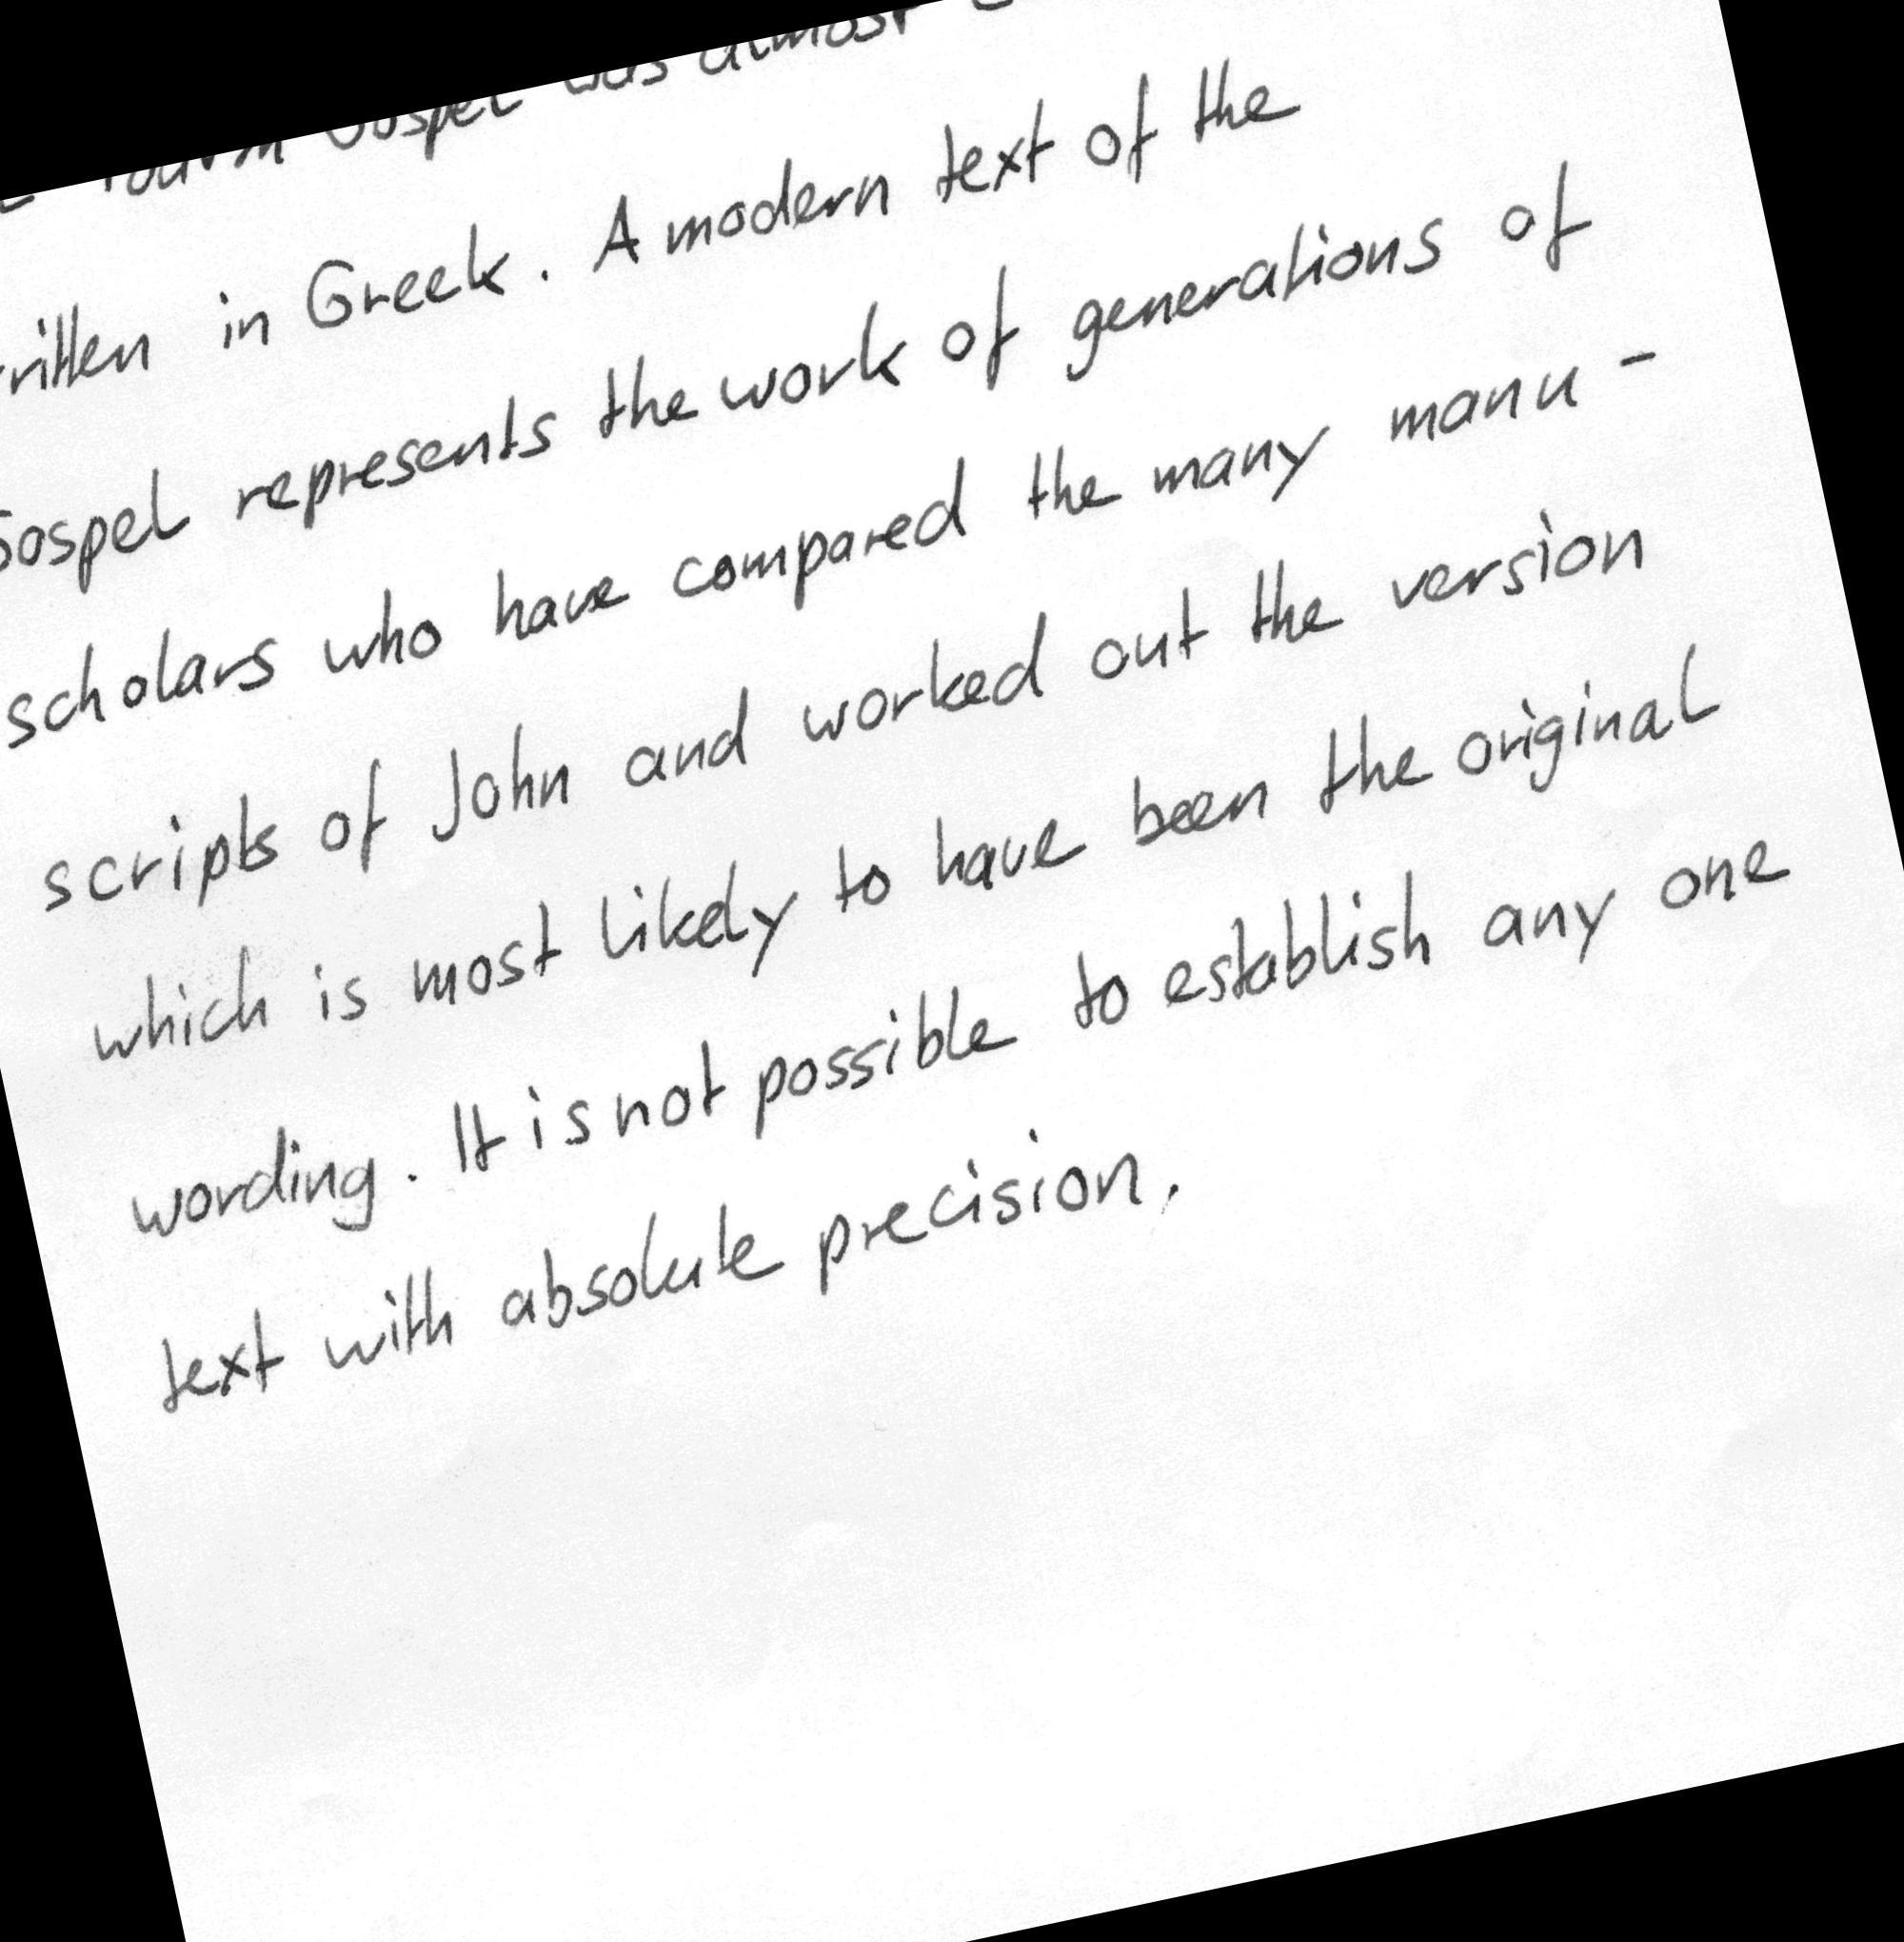 Gospel was almost
written in Greek. A modern text of the
Gospel represents the work of generations of
scholars who have compared the many manu-
scripts of John and worked out the version
which is most likely to have been the original
wording. It is not possible to establish any one
text with absolute precision.